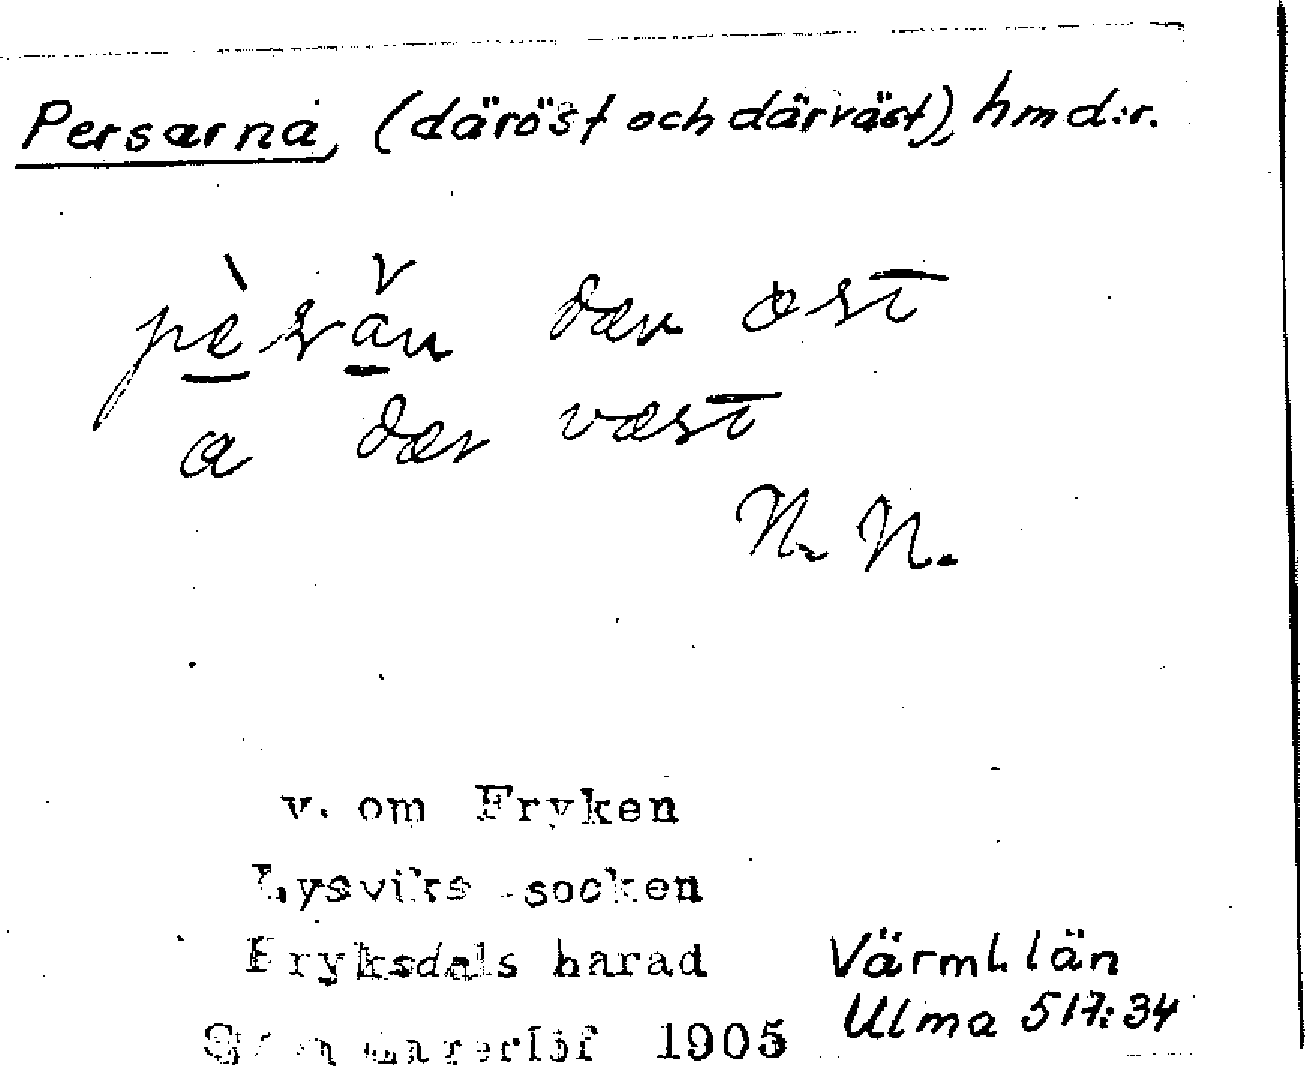 Persarna, (däröst och därväst), hmd:r.
pèsăn dær øst
a dær væst
N. N.
v. om Fryken
Lysviks socken
Fryksdals härad Värml. län
1905 Ulma 517:34